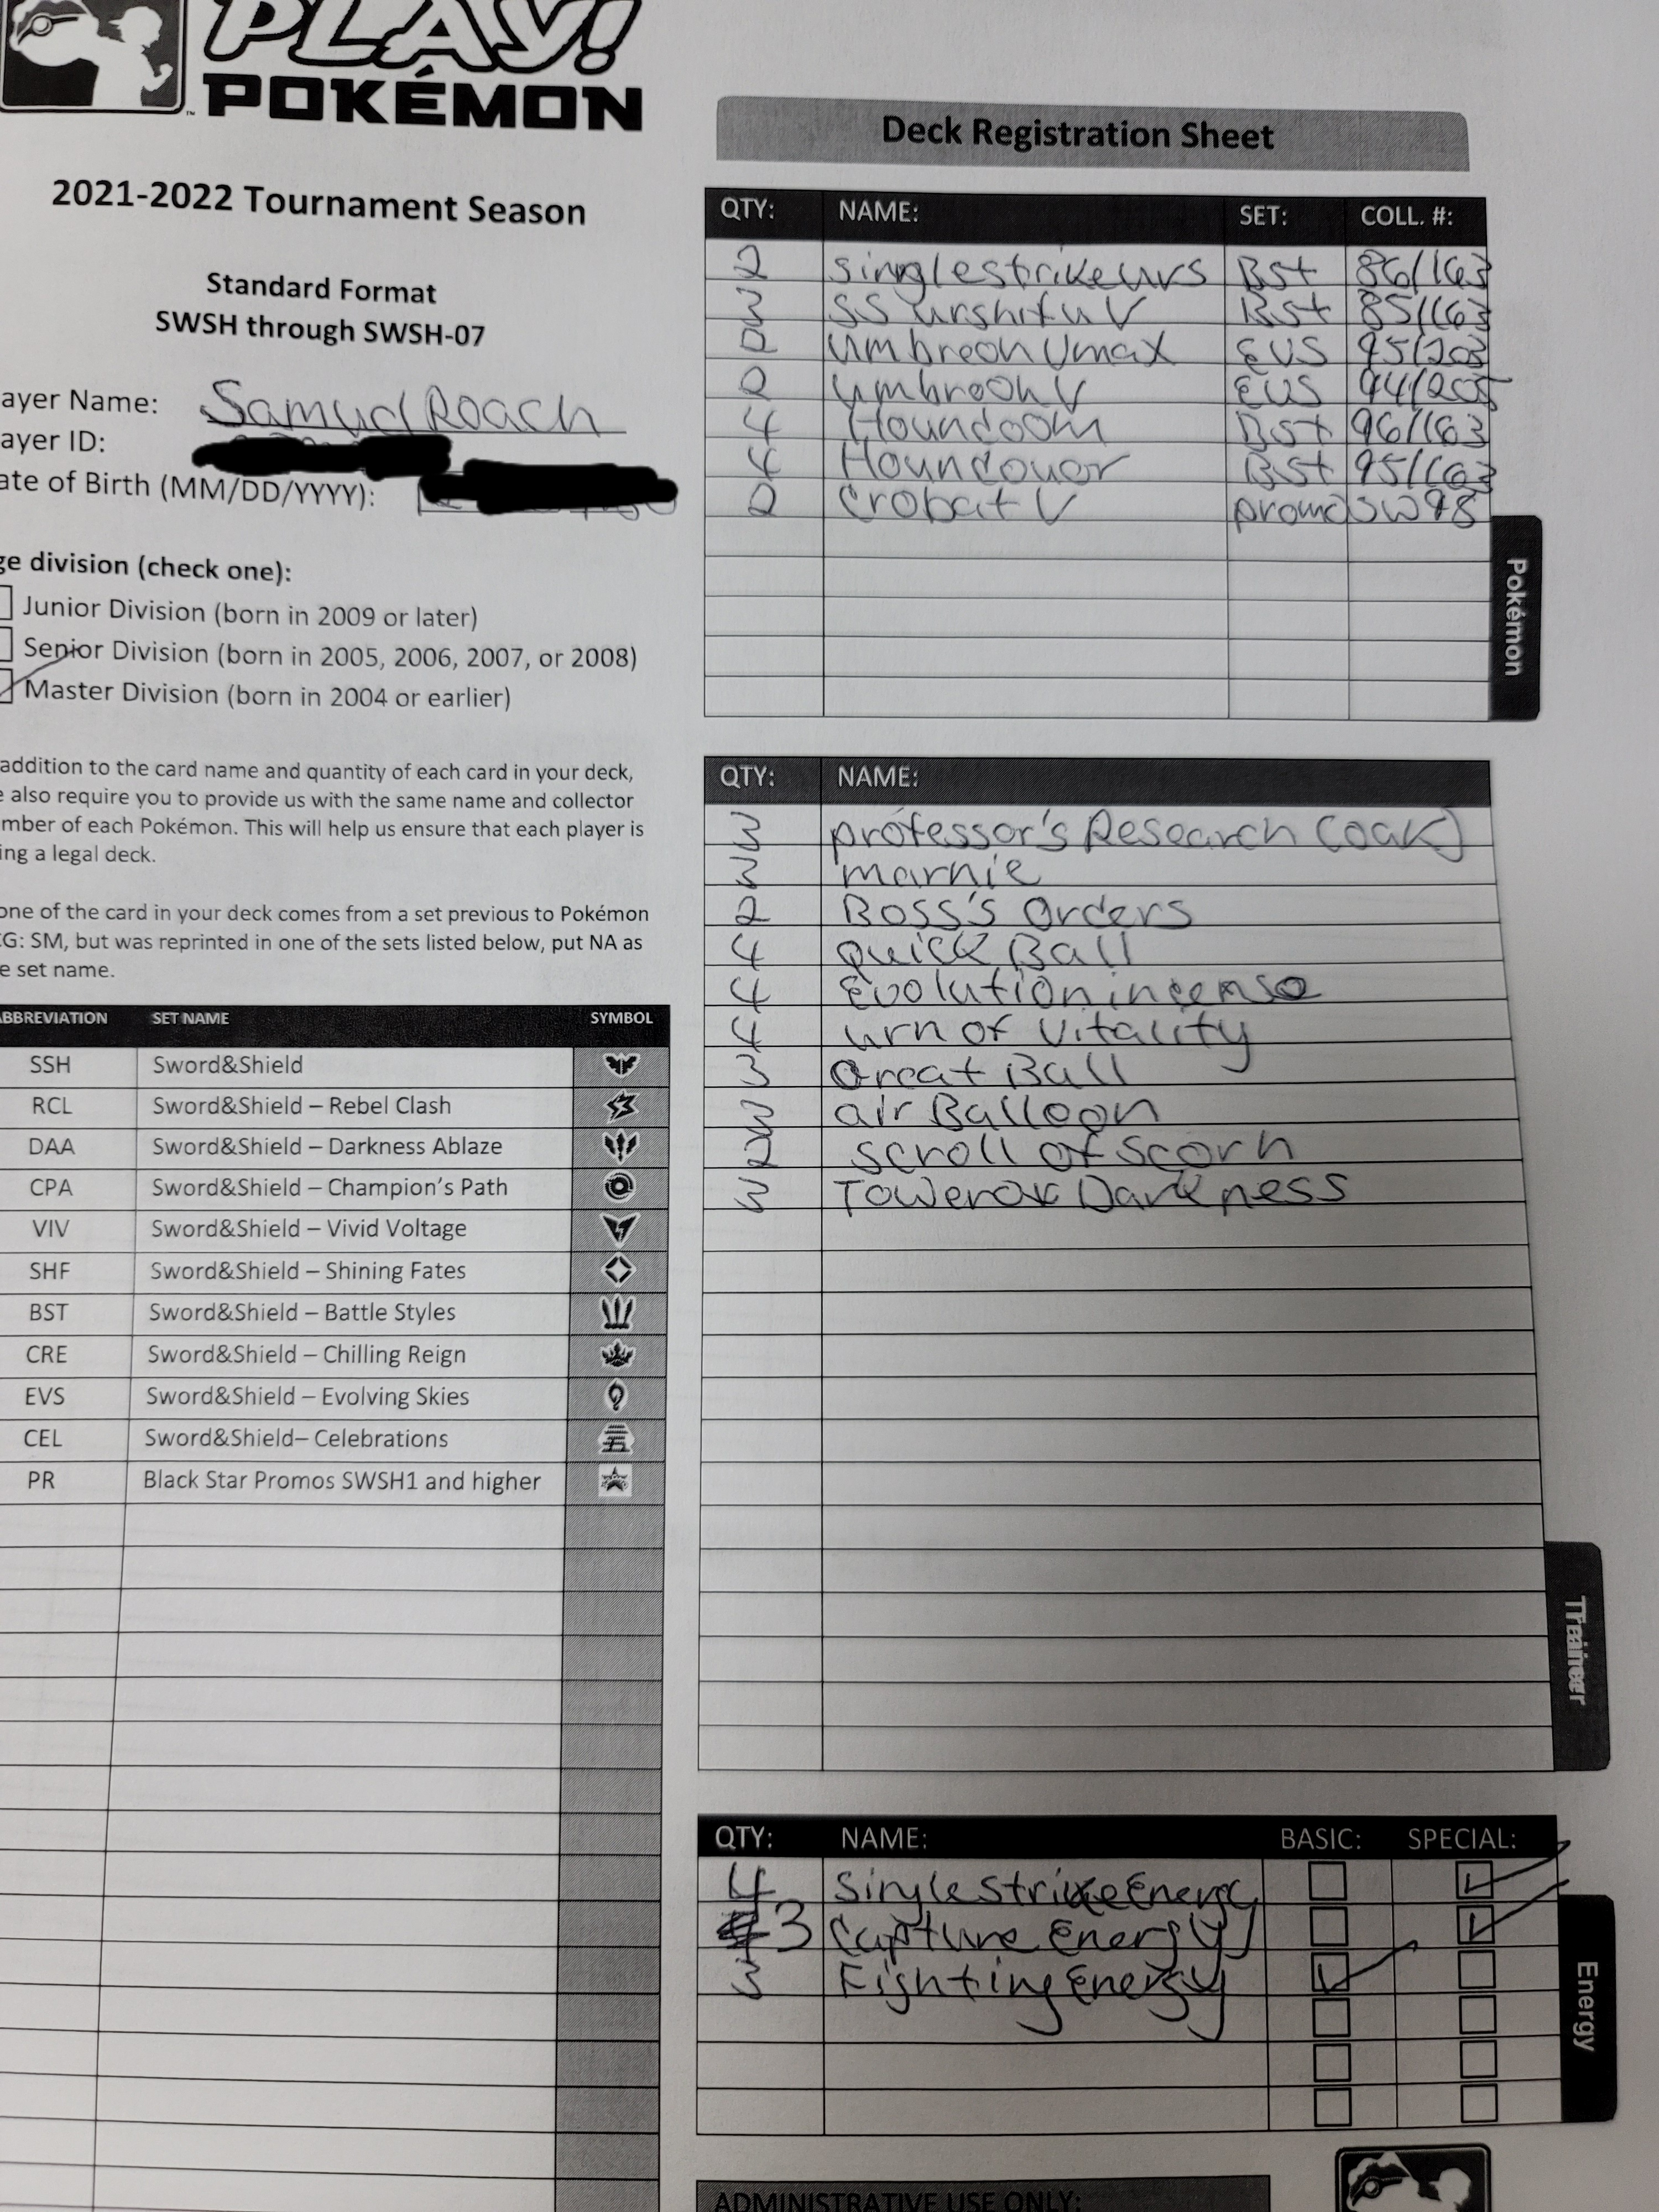 PLAY!
POKÉMON
™
2021-2022 Tournament Season
Standard Format
SWSH through SWSH-07
ayer Name: Samuel Roach
ayer ID:
ate of Birth (MM/DD/YYYY):
ge division (check one):
Junior Division (born in 2009 or later)
Senior Division (born in 2005, 2006, 2007, or 2008)
Master Division (born in 2004 or earlier)
addition to the card name and quantity of each card in your deck,
e also require you to provide us with the same name and collector
mber of each Pokémon. This will help us ensure that each player is
ing a legal deck.
one of the card in your deck comes from a set previous to Pokémon
CG: SM, but was reprinted in one of the sets listed below, put NA as
e set name.
ABBREVIATION SET NAME SYMBOL
SSH Sword&Shield
RCL Sword&Shield – Rebel Clash
DAA Sword&Shield – Darkness Ablaze
CPA Sword&Shield – Champion's Path
VIV Sword&Shield – Vivid Voltage
SHF Sword&Shield – Shining Fates
BST Sword&Shield – Battle Styles
CRE Sword&Shield – Chilling Reign
EVS Sword&Shield – Evolving Skies
CEL Sword&Shield– Celebrations
PR Black Star Promos SWSH1 and higher
Deck Registration Sheet
QTY: NAME: SET: COLL. #:
2 singlestrikeurs Bst 86/163
3 SS urshifu V Bst 85/163
2 umbreon Vmax EVS 95/203
2 umbreon V EVS 94/205
4 Houndoom Bst 96/163
4 Houndouor Bst 95/163
2 crobat V promo SW98
Pokémon
QTY: NAME:
3 professor's Research (oak)
3 marnie
2 Boss's Orders
4 quick Ball
4 Evolution incense
4 urn of vitality
3 Great Ball
3 air Balloon
2 scroll of scorn
3 Tower of Darkness
Trainer
QTY: NAME: BASIC: SPECIAL:
4 Single Strike Energy
3 Capture Energy
3 Fighting Energy
Energy
ADMINISTRATIVE USE ONLY: